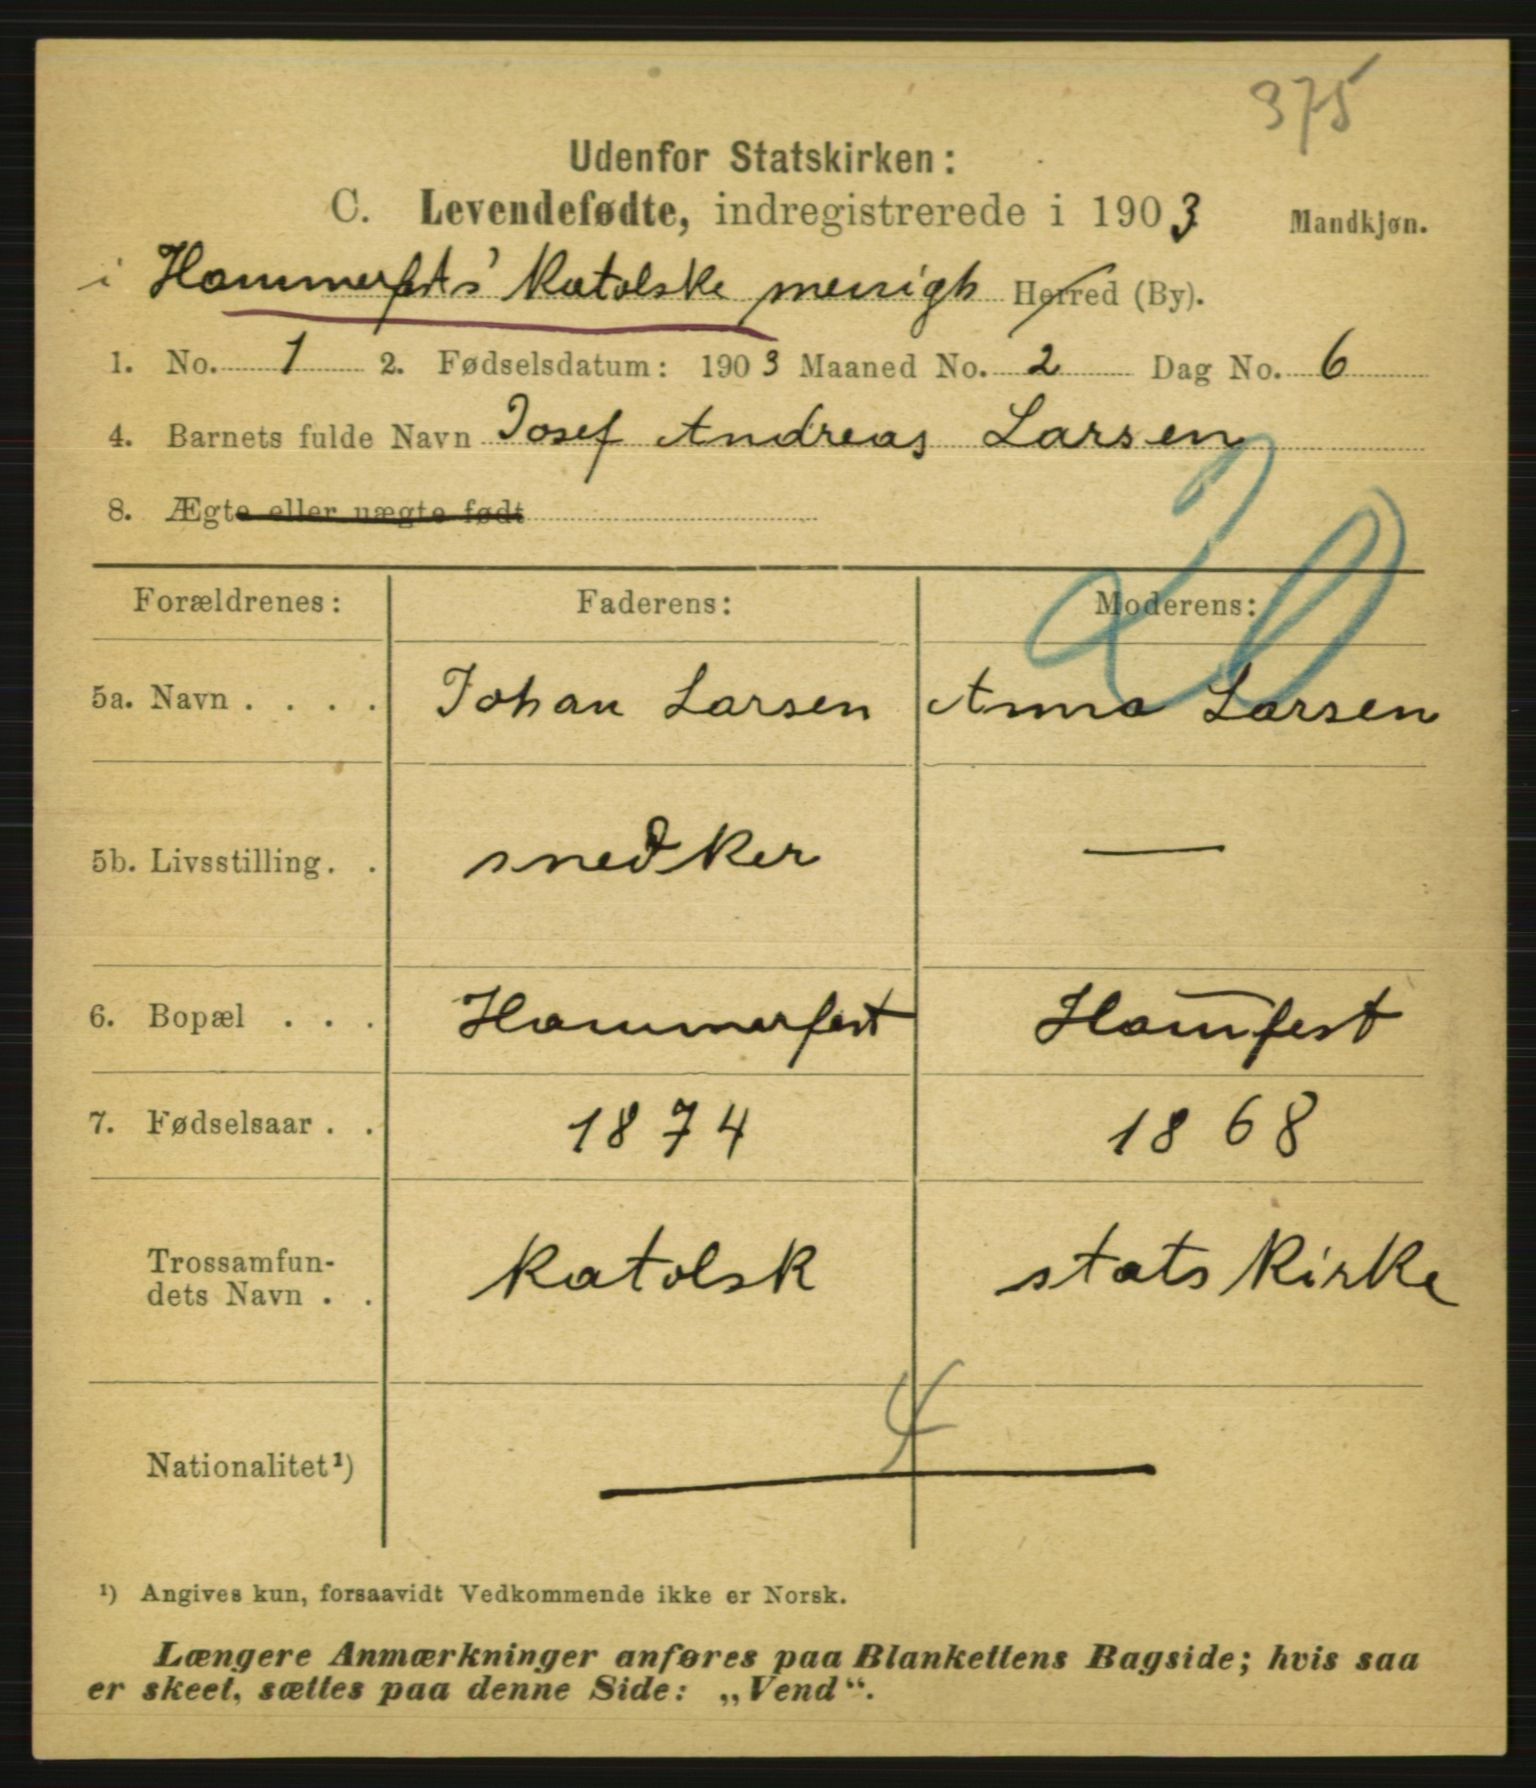 375
Udenfor Statskirken:
C. Levendefødte, indregistrerede i 1903 Mandkjøn.
i Hammerfests' Katolske menigh Herred (By).
1. No. 1 2. Fødselsdatum: 1903 Maaned No. 2 Dag No. 6
4. Barnets fulde Navn Josef Andreas Larsen
8. Ægte eller uægte født
20
Forældrenes: Faderens: Moderens:
5a. Navn . . . . Johan Larsen Anna Larsen
5b. Livsstilling. . snedker —
6. Bopæl . . . Hammerfest Ham̅fest
7. Fødselsaar . . 1874 1868
Trossamfun-
dets Navn . . Katolsk statskirke
Nationalitet¹)
¹) Angives kun, forsaavidt Vedkommende ikke er Norsk.
Længere Anmærkninger anføres paa Blankettens Bagside; hvis saa
er skeet, sættes paa denne Side: „Vend“.